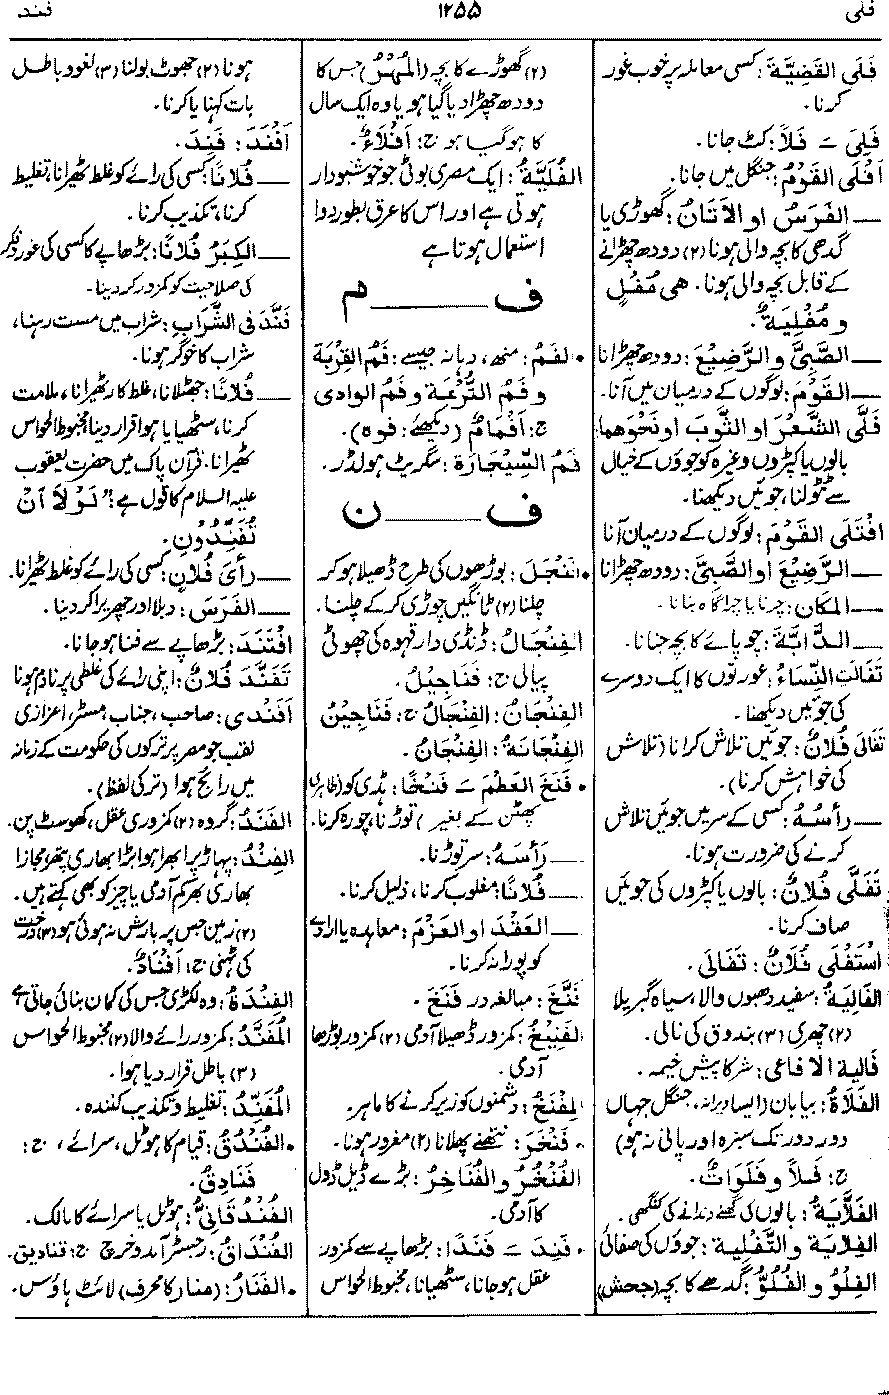 فلی ۱۲۵۵ فند
فَلَی القَضِیَّةَ: کسی معاملہ پر خوب غور
کرنا۔
فَلِیَ ــَ فَلاً: کٹ جانا۔
اَفْلَی القَوْمُ: جنگل میں جانا۔
ـــ الفَرَسُ او الاَتَانُ: گھوڑی یا
گدھی کا بچہ والی ہونا (۲) دودھ چھڑانے
کے قابل بچہ والی ہونا۔ ھی مُفْلٍ
و مُفْلِیَةٌ۔
ـــ الصَّبِیَّ والرَّضِیْعَ: دودھ چھڑانا
ـــ القَوْمَ: لوگوں کے درمیان میں آنا۔
فَلَّی الشَّعْرَ او الثَّوبَ او نَحْوَھما
بالوں یا کپڑوں وغیرہ کو جوؤں کے خیال
سے ٹٹولنا، جوئیں دیکھنا۔
افْتَلَی القَوْمَ: لوگوں کے درمیان آنا
ـــ الرَّضِیْعَ او الصَّبِیَّ: دودھ چھڑانا
ـــ المکان: چرنا یا چراگاہ بنانا۔
ـــ الدَّابَّةَ: چوپائے کا بچہ جنانا۔
تَفَالَتِ النِّسَاءُ: عورتوں کا ایک دوسرے
کی جوئیں دیکھنا۔
تَفَالَی فُلَانٌ: جوئیں تلاش کرانا (تلاش
کی خواہش کرنا)۔
ـــ رأسُهُ: کسی کے سر میں جوئیں تلاش
کرنے کی ضرورت ہونا۔
تَفَلَّی فُلَانٌ: بالوں یا کپڑوں کی جوئیں
صاف کرنا۔
اسْتَفْلَی فُلَانٌ: تَفَالَی۔
الفَالِیَةُ: سفید دھبوں والا، سیاہ گبریلا
(۲) چھری (۳) بندوق کی نالی۔
فَالِیة الافاعی: شر کا پیش خیمہ۔
الفَلَاةُ: بیابان (ایسا ویرانہ، جنگل جہاں
دور دور تک سبزہ اور پانی نہ ہو)
ج: فَلاً و فَلَوَاتٌ۔
الفَلَّایَةُ: بالوں کی گھنے دندانے کی کنگھی۔
الفِلَایَة والتَّفْلِیة: جوؤں کی صفائی
الفِلْوُ و الفُلُوُّ: گدھے کا بچہ (جحش)
(۲) گھوڑے کا بچہ (المُھْرُ) جس کا
دودھ چھڑا دیا گیا ہو یا وہ ایک سال
کا ہو گیا ہو ج: اَفْلَاءٌ۔
الفُلَیَّةُ: ایک مصری بوٹی جو خوشبودار
ہوتی ہے اور اس کا عرق بطور دوا
استعمال ہوتا ہے
ف ـــــ م
• الفَمُ: منھ، دہانہ جیسے: فَمُ القِرْبَة
و فَمُ التُّرْعَة و فَمُ الوادی
ج: اَفْمَامٌ (دیکھئے: فوہ)۔
فَمُ السِّیْجَارَة: سگریٹ ہولڈر۔
ف ـــــ ن
• فَنْجَلَ: بوڑھوں کی طرح ڈھیلا ہو کر
چلنا (۲) ٹانگیں چوڑی کر کے چلنا۔
الفِنْجَالُ: ڈنڈی دار قہوہ کی چھوٹی
پیالی ج: فَنَاجِیْلُ۔
الفِنْجَانُ: الفِنْجَالُ ج: فَنَاجِیْنُ
الفِنْجَانَةُ: الفِنْجَانُ۔
• فَنَخَ العَظْمَ ــَ فَنْخًا: ہڈی کو (ظاہری
پھٹن کے بغیر) توڑنا، چورہ کرنا۔
ـــ رَأسَهُ: سر توڑنا۔
ـــ فُلَانًا: مغلوب کرنا، ذلیل کرنا۔
ـــ العَقْدَ او العَزْمَ: معاہدہ یا ارادے
کو پورا نہ کرنا۔
فَنَّخَ: مبالغہ در فَنَخَ۔
الفَنِیْخُ: کمزور ڈھیلا آدمی (۲) کمزور بوڑھا
آدمی۔
المِفْنَخُ: دشمنوں کو زیر کرنے کا ماہر۔
• فَنْخَرَ: نتھنے پھلانا (۲) مغرور ہونا۔
الفُنْخُرُ والفُنَاخِرُ: بڑے ڈیل ڈول
کا آدمی۔
• فَنِدَ ــَ فَنَدًا: بڑھاپے سے کمزور
عقل ہو جانا، سٹھیانا، مخبوط الحواس
ہونا (۲) جھوٹ بولنا (۳) لغو و باطل
بات کہنا یا کرنا۔
اَفْنَدَ: فَنِدَ۔
ـــ فُلَانًا: کسی کی رائے کو غلط ٹھہرانا، تغلیط
کرنا، تکذیب کرنا۔
ـــ الکِبَرُ فُلَانًا: بڑھاپے کا کسی کی غور و فکر
کی صلاحیت کو کمزور کر دینا۔
فَنَّدَ فی الشَّرَابِ: شراب میں مست رہنا،
شراب کا خوگر ہونا۔
ـــ فُلَانًا: جھٹلانا، غلط کار ٹھہرانا، ملامت
کرنا، سٹھیایا ہوا قرار دینا مخبوط الحواس
ٹھہرانا۔ قرآن پاک میں حضرت یعقوب
علیہ السلام کا قول ہے: "لَوْلَا اَنْ
تُفَنِّدُوْنِ۔
ـــ رأیَ فُلَانٍ: کسی کی رائے کو غلط ٹھہرانا۔
ـــ الفَرَسَ: دبلا اور چھریرا کر دینا۔
افْتَنَدَ: بڑھاپے سے فنا ہو جانا۔
تَفَنَّدَ فُلَانٌ: اپنی رائے کی غلطی پر نادم ہونا
اَفَنْدی: صاحب، جناب، مسٹر، اعزازی
لقب جو مصر پر ترکوں کی حکومت کے زمانہ
میں رائج ہوا (ترکی لفظ)۔
الفَنْدُ: گروہ (۲) کمزوری عقل، کھوسٹ پن۔
الفِنْدُ: پہاڑ پر ابھرا ہوا بڑا بھاری پتھر، مجازا
بھاری بھرکم آدمی یا چیز کو بھی کہتے ہیں۔
(۲) زمین جس پر بارش نہ ہوئی ہو (۳) درخت
کی ٹہنی ج: اَفْنَادٌ۔
الفِنْدَةُ: وہ لکڑی جس کی کمان بنائی جاتی ہے
المُفَنَّدُ: کمزور رائے والا (۲) مخبوط الحواس
(۳) باطل قرار دیا ہوا۔
المُفَنِّدُ: تغلیط و تکذیب کنندہ۔
• الفُنْدُقُ: قیام کا ہوٹل، سرائے، ج:
فَنَادِقُ۔
الفُنْدُقَانِیُّ: ہوٹل یا سرائے کا مالک۔
الفُنْدَاقُ: رجسٹر آمد و خرچ ج: فنادیق۔
• الفَنَارُ: (منار کا محرف) لائٹ ہاؤس۔